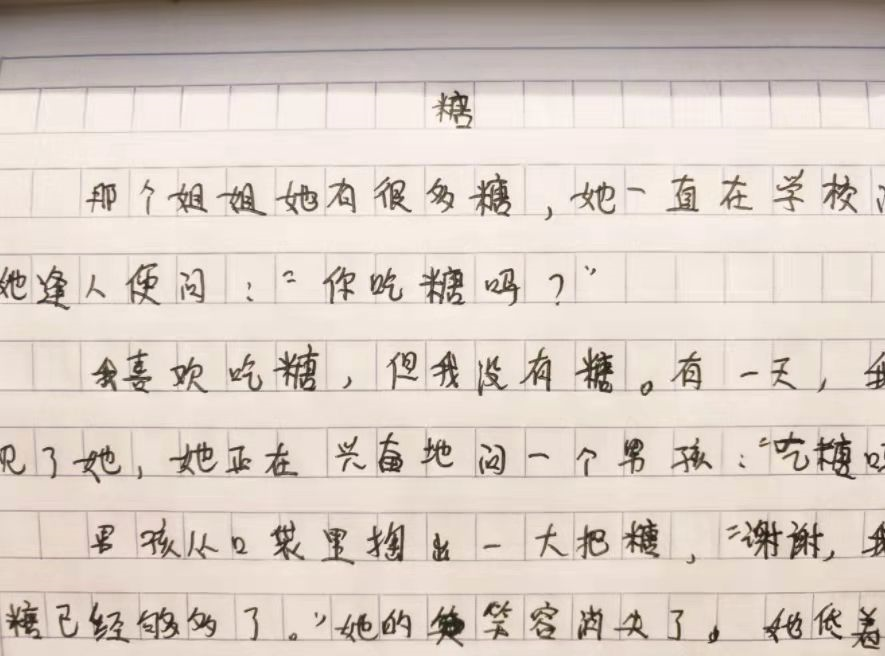 糖
那个姐姐她有很多糖，她一直在学校
她逢人便问：“你吃糖吗？”
我喜欢吃糖，但我没有糖。有一天，我
见了她，她正在兴奋地问一个男孩：“吃糖吗
男孩从口袋里掏出一大把糖，“谢谢，我
糖已经够多了。”她的笑容消失了，她低着